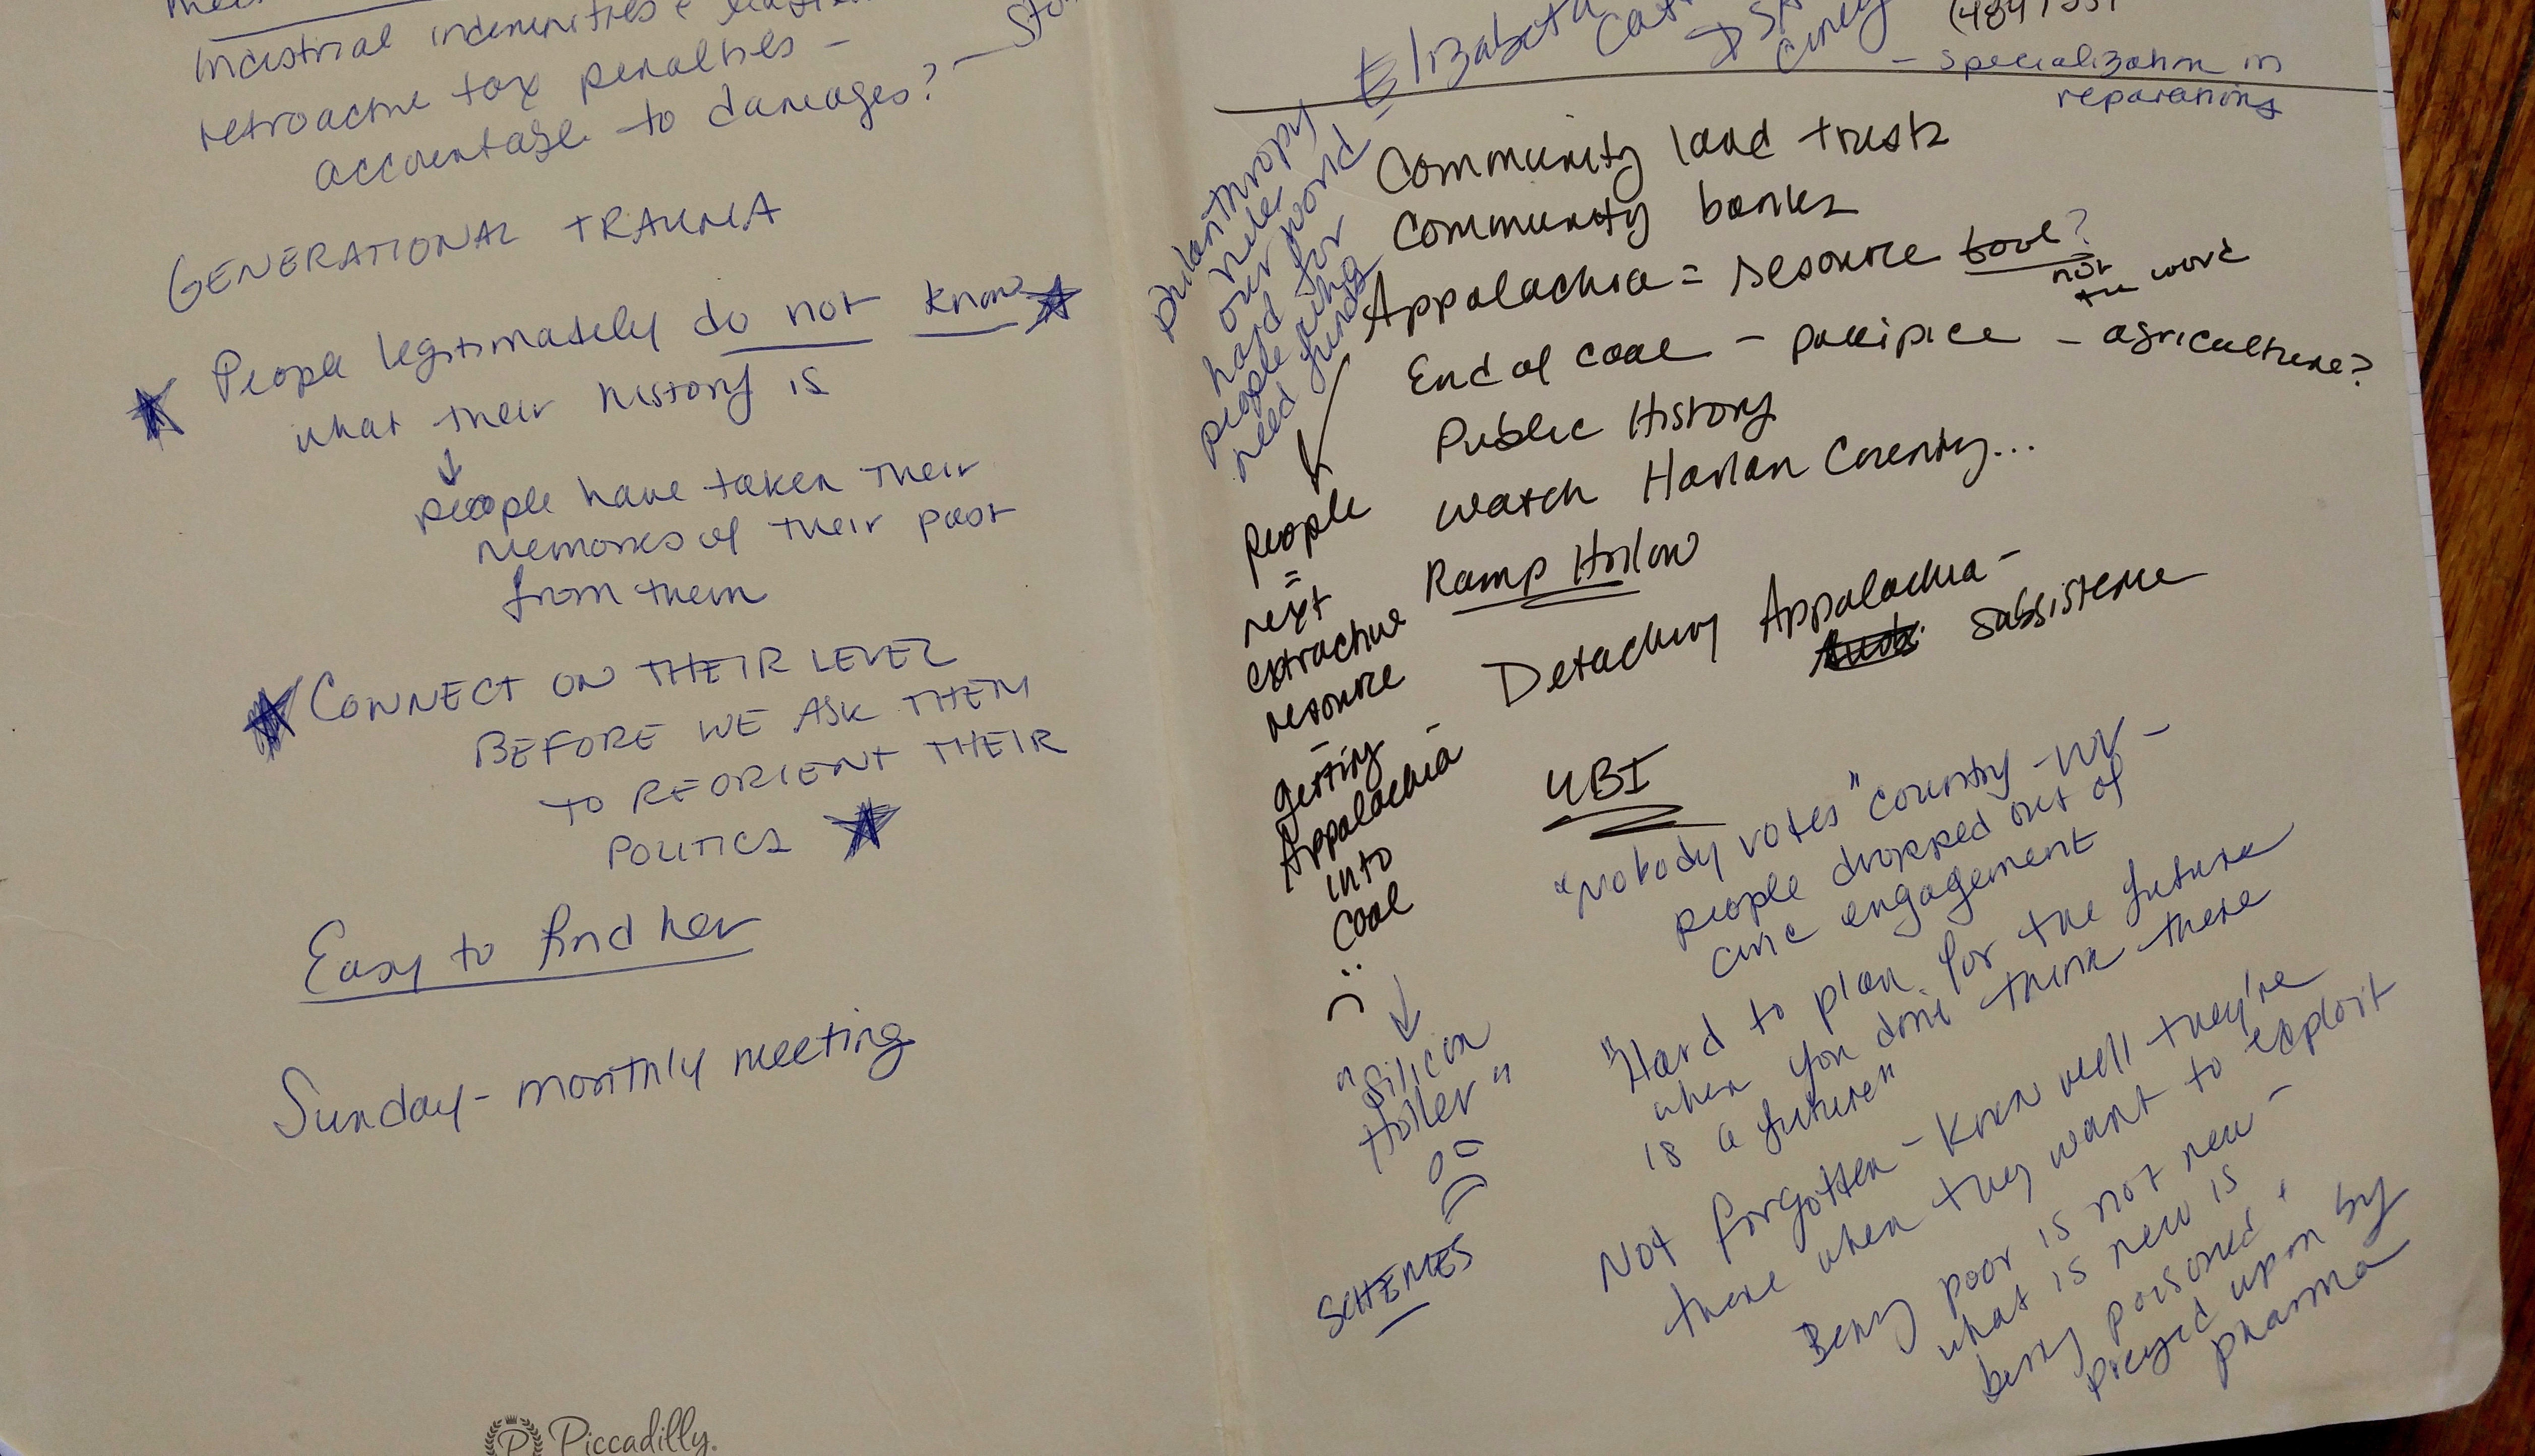 Industrial indemnities &
retroactive tax penalties -
accountable to damages? —
GENERATIONAL TRAUMA
People legitimately do not know
what their history is
↓
people have taken their
memories of their past
from them
CONNECT ON THEIR LEVEL
BEFORE WE ASK THEM
TO REORIENT THEIR
POLITICS
Easy to find her
Sunday - monthly meeting
Piccadilly
Elizabeth
- specialization in
reparations
Community land trusts
Community banks
Appalachia = resource
not
the word
End of coal - - agriculture?
Public History
watch Harlan County...
Ramp Hollow
Detaching Appalachia -
Subsistence
UBI
"Nobody votes" country - WV -
people dropped out of
civic engagement
"Hard to plan for the future
when you don't think there
is a future"
Not forgotten - know well they're
there when they want to exploit
Being poor is not new -
what is new is
being poisoned +
preyed upon by
pharma
philanthropy
rules
our world
hard for
people who
need funds
people
=
next
extractive
resource
-
getting
Appalachia
into
coal
:(
↓
"Silicon
Holler"
SCHEMES